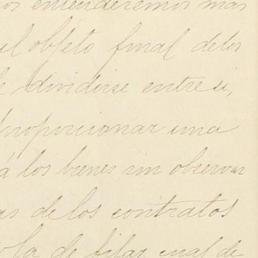 os entenderemos mas
el objeto final de los
dividirse entre si,
proporcionar una
á los bienes sin observar
as de los contratos
de fijar cual de